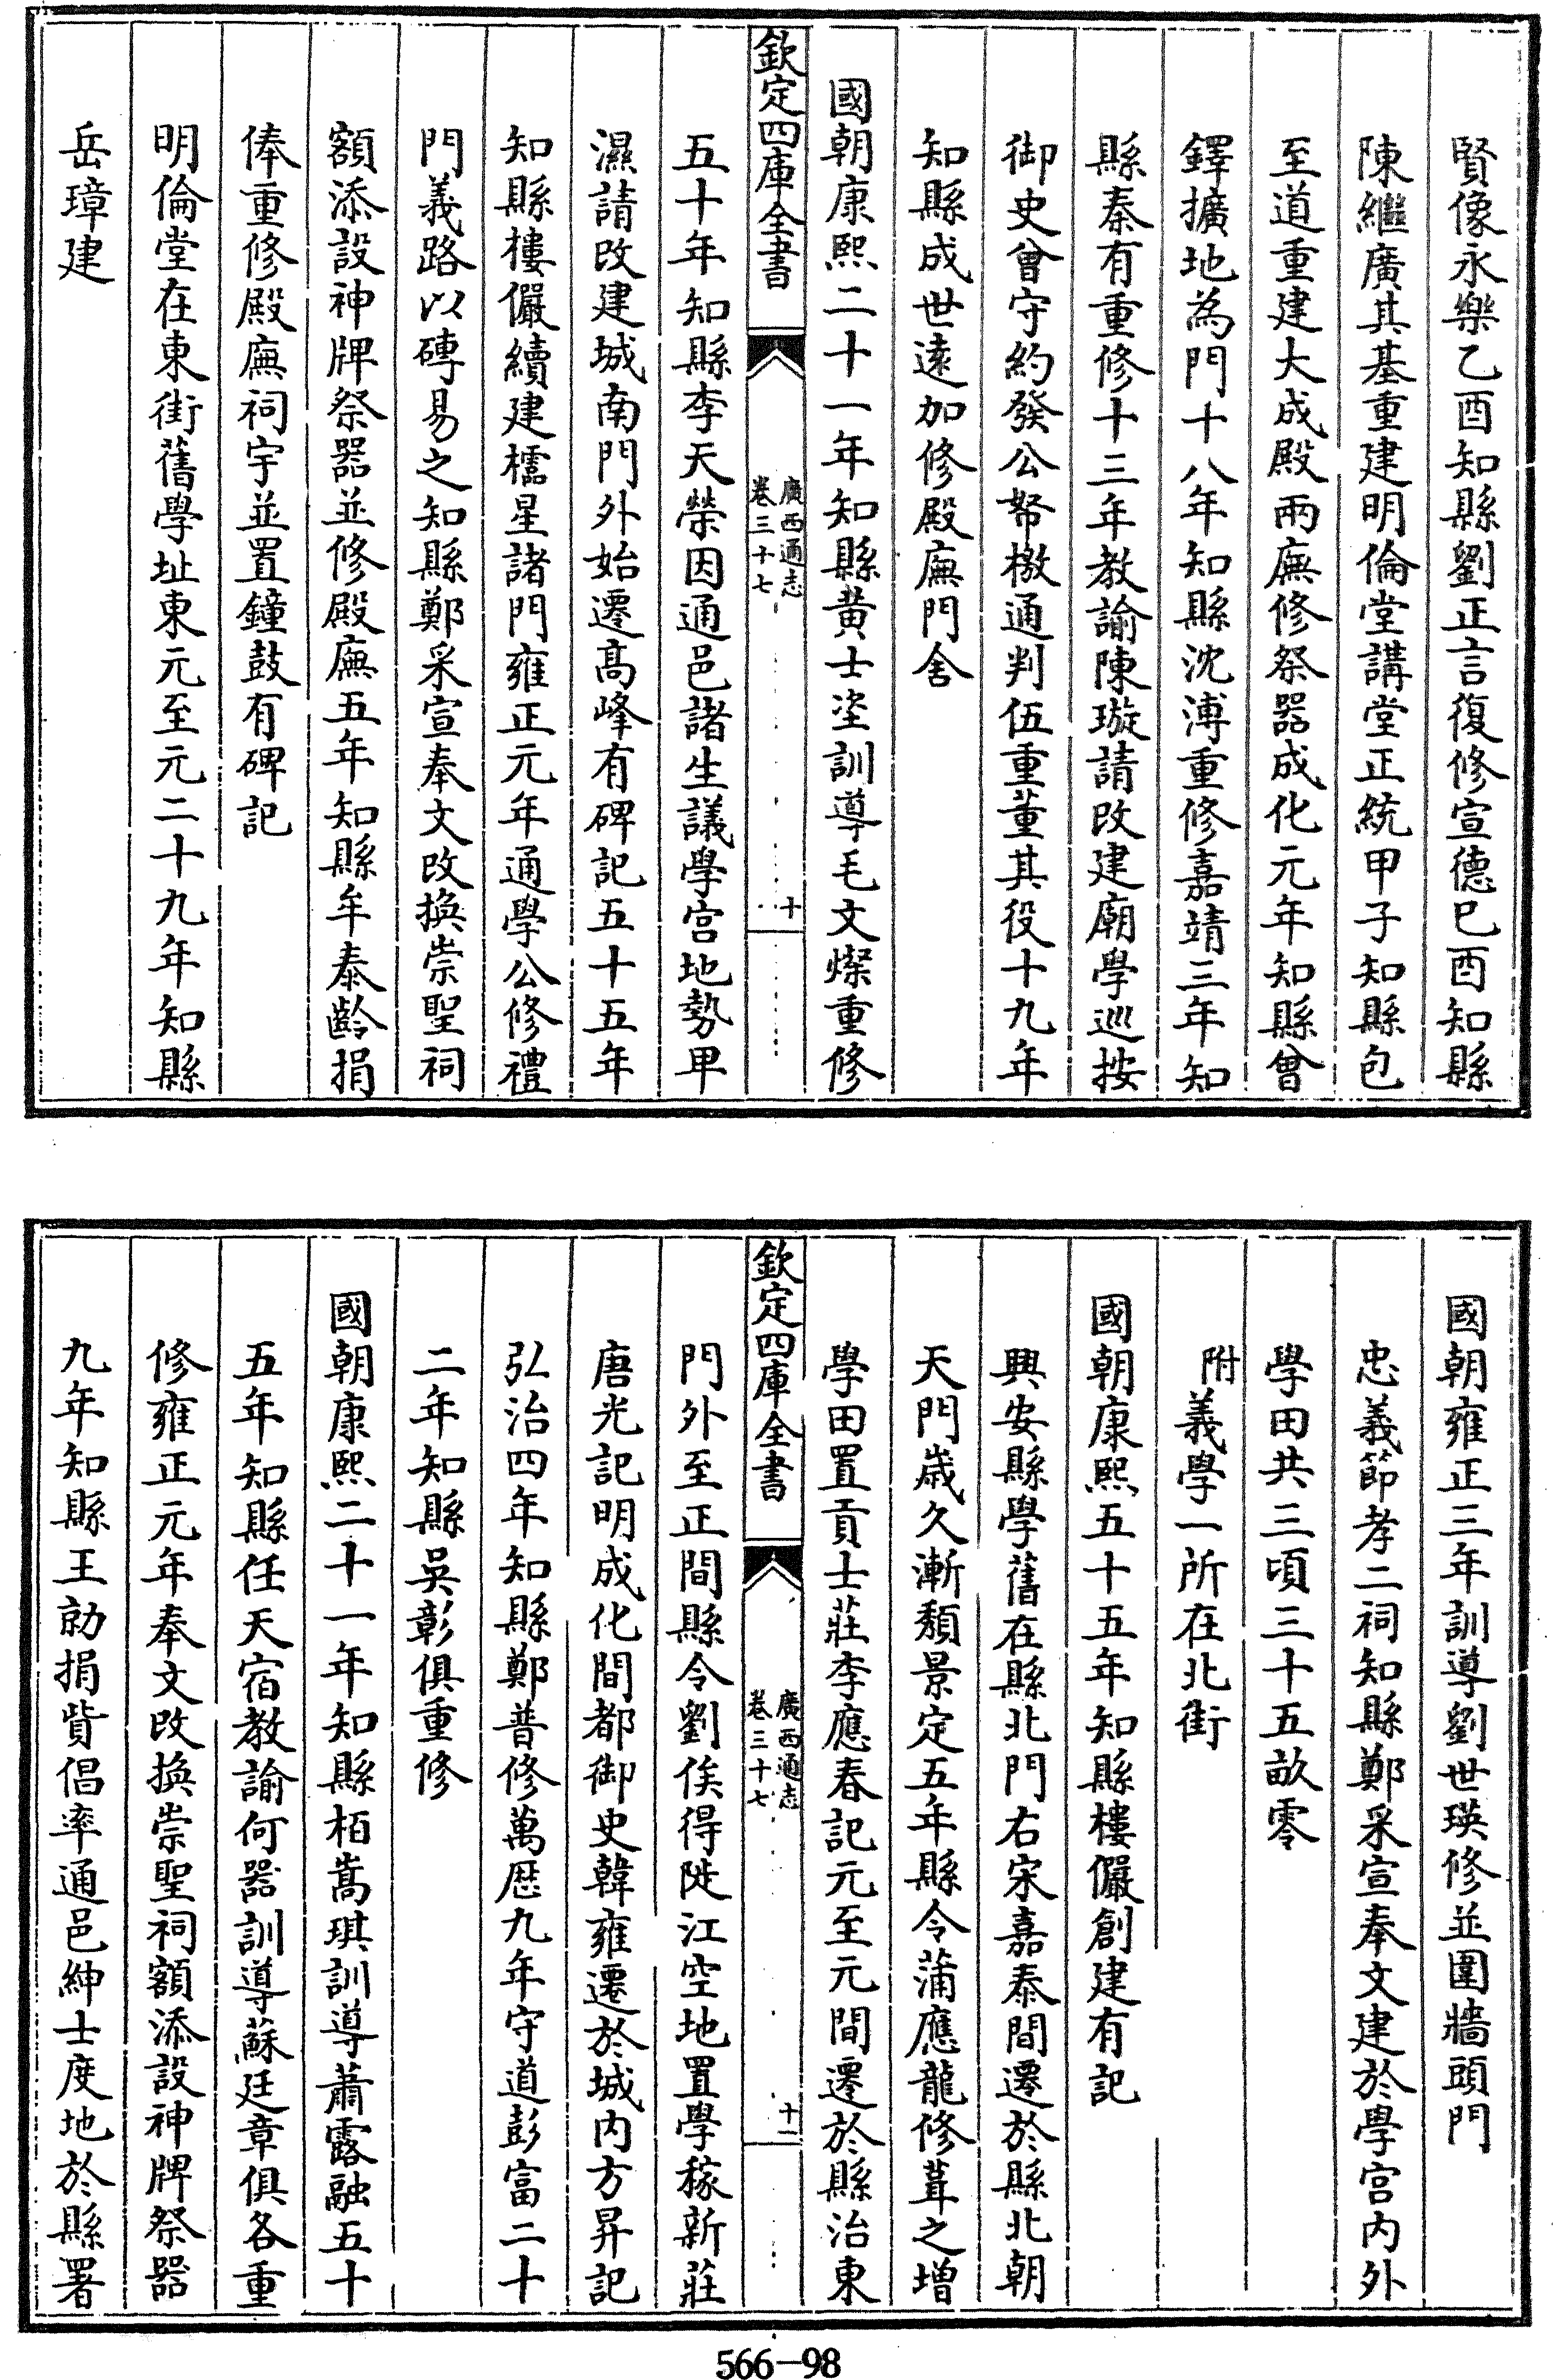 賢像永樂乙酉知縣劉正言復修宣德巳酉知縣
陳繼廣其基重建明倫堂講堂正統甲子知縣包
至道重建大成殿兩廡修祭器成化元年知縣曾
鐸擴地為門十八年知縣沈溥重修嘉靖三年知
縣秦有重修十三年教諭陳璇請改建廟學巡按
御史曾守約發公帑檄通判伍重董其役十九年
知縣成世遠加修殿廡門舍
國朝康熙二十一年知縣黄士垐訓導毛文燦重修
欽定四庫全書
廣西通志
卷三十七
十
五十年知縣李天榮因通邑諸生議學宫地勢甲
濕請改建城南門外始遷髙峰有碑記五十五年
知縣樓儼續建櫺星諸門雍正元年通學公修禮
門義路以磚易之知縣鄭采宣奉文改換崇聖祠
額添設神牌祭器並修殿廡五年知縣牟泰齡捐
俸重修殿廡祠宇並置鐘鼓有碑記
明倫堂在東街舊學址東元至元二十九年知縣
岳璋建
國朝雍正三年訓導劉世瑛修並圍牆頭門
忠義節孝二祠知縣鄭采宣奉文建於學宫内外
學田共三頃三十五畝零
附義學一所在北街
國朝康熙五十五年知縣樓儼創建有記
興安縣學舊在縣北門右宋嘉泰間遷於縣北朝
天門歲久漸頽景定五年縣令蒲應龍修葺之增
學田置貢士莊李應春記元至元間遷於縣治東
欽定四庫全書
廣西通志
卷三十七
十一
門外至正間縣令劉俟得陡江空地置學稼新莊
唐光記明成化間都御史韓雍遷於城内方昇記
弘治四年知縣鄭普修萬厯九年守道彭富二十
二年知縣吳彰俱重修
國朝康熙二十一年知縣栢蒿琪訓導蕭露融五十
五年知縣任天宿教諭何器訓導蘇廷章俱各重
修雍正元年奉文改換崇聖祠額添設神牌祭器
九年知縣王勍捐貲倡率通邑紳士度地於縣署
566-98